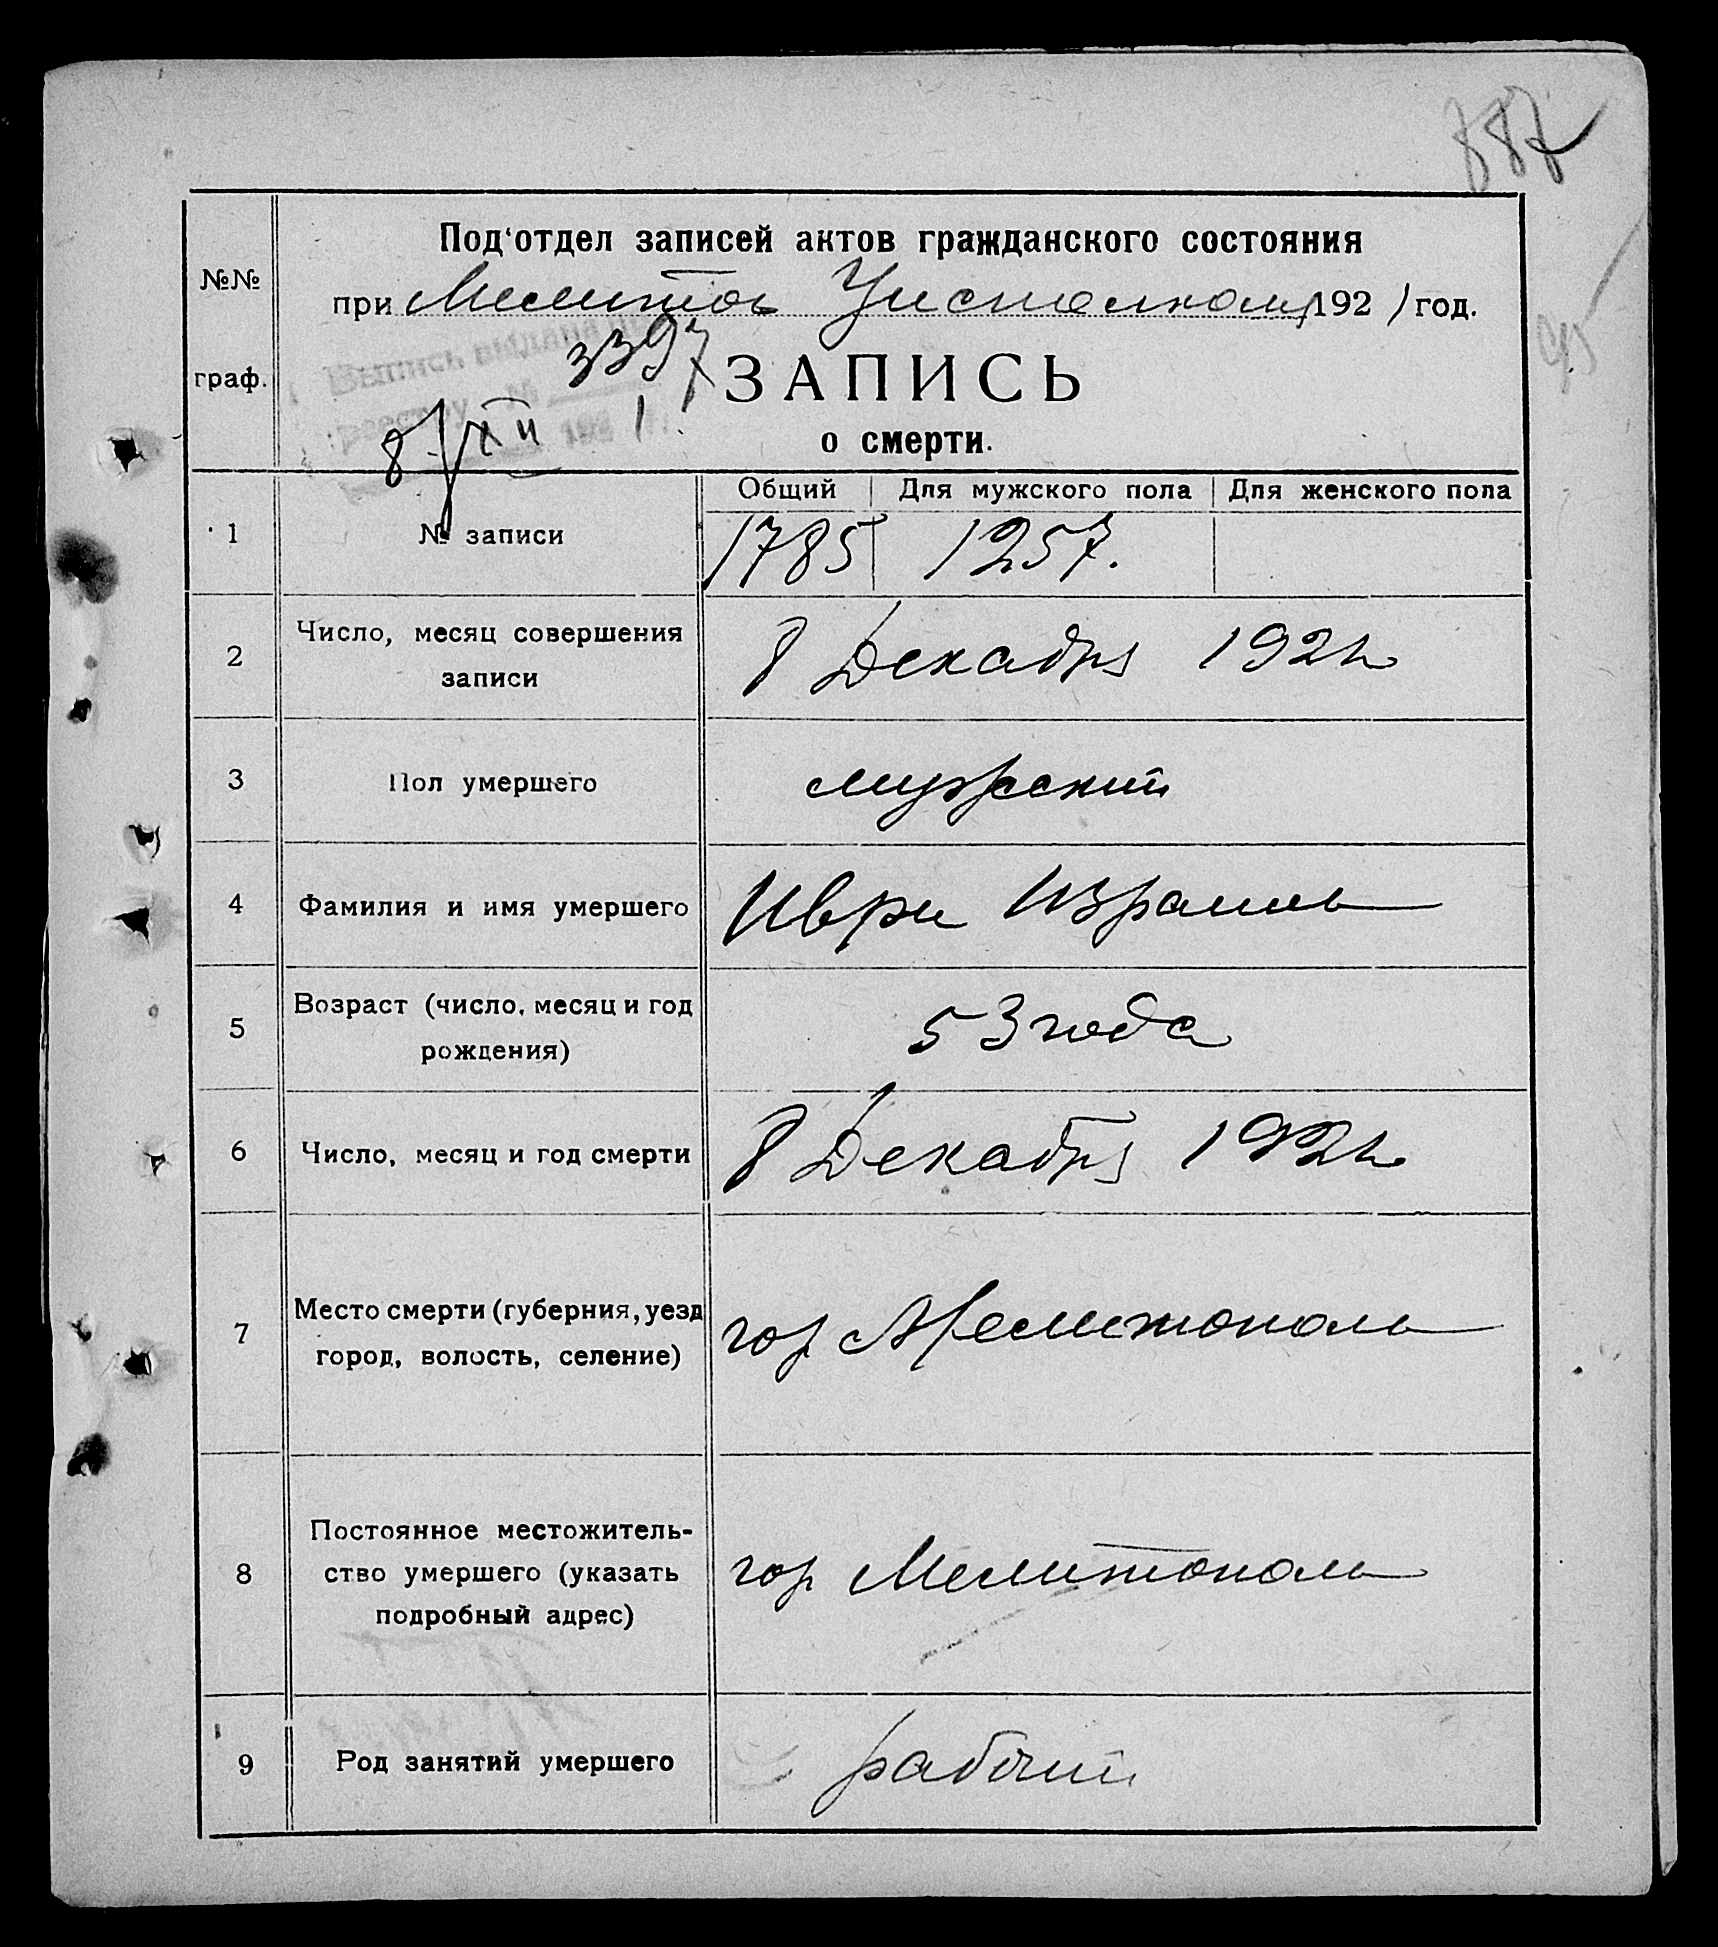 887
Под‘отдел записей актов гражданского состояния
№№
при Мелитоп Уисполкоме 1921 год.
95
Выпись выдана
3397
граф.
ЗАПИСЬ
реестру №
8/XII 1
192
о смерти.
Общий Для мужского пола Для женского пола
1 № записи 1785 1257.
2 Число, месяц совершения
записи
8 Декабря 1921 г
3 Пол умершего мужский
4 Фамилия и имя умершего Иври Израиль
5 Возраст (число, месяц и год
рождения)
53 года
6 Число, месяц и год смерти 8 Декабря 1921 г
7 Место смерти (губерния, уезд
город, волость, селение)
гор Мелитополь
8 Постоянное местожитель-
ство умершего (указать
подробный адрес)
гор Мелитополь
9 Род занятий умершего рабочий